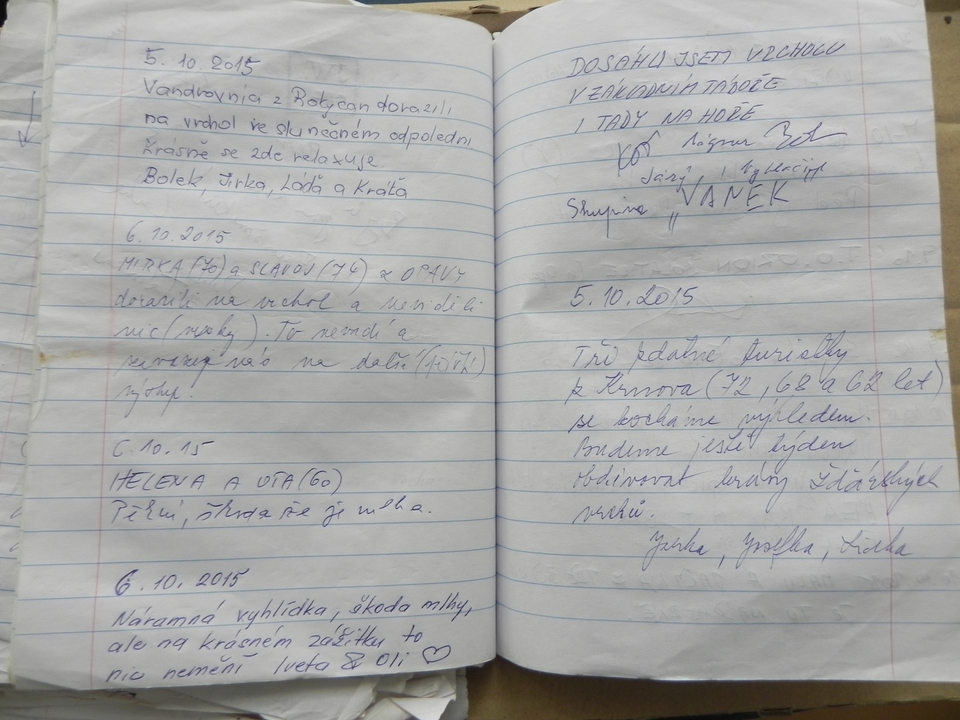 5.10.2015
Vandrovnia z Rokycan dorazili
na vrchol ve slunečném odpoledni
Krásně se zde relaxuje
Bolek, Jirka, Láďa a Kráťa
6.10.2015
MIRKA (70) a SLAVOJ (74) z OPAVY
dorazili na vrchol a neviděli
nic (mraky). To nevadí a
na další
výstup.
6.10.15
HELENA A OTA (60)
Pěkné, škoda že je mlha.
6.10.2015
Náramná vyhlídka, škoda mlhy,
ale na krásném zážitku to
nic nemění Iveta & Oli ♡
DOSÁHLI JSEM VRCHOLU
V ZÁKLADNÍM TÁBOŘE
I TADY NA HOŘE
Skupina "VANEK
5.10.2015
Tři zdatné turistky
z Krnova (72, 68 a 62 let)
se kocháme výhledem.
Budeme ještě týden
obdivovat krásy Žďárských
vrchů.
Jarka, Josefka, Lidka